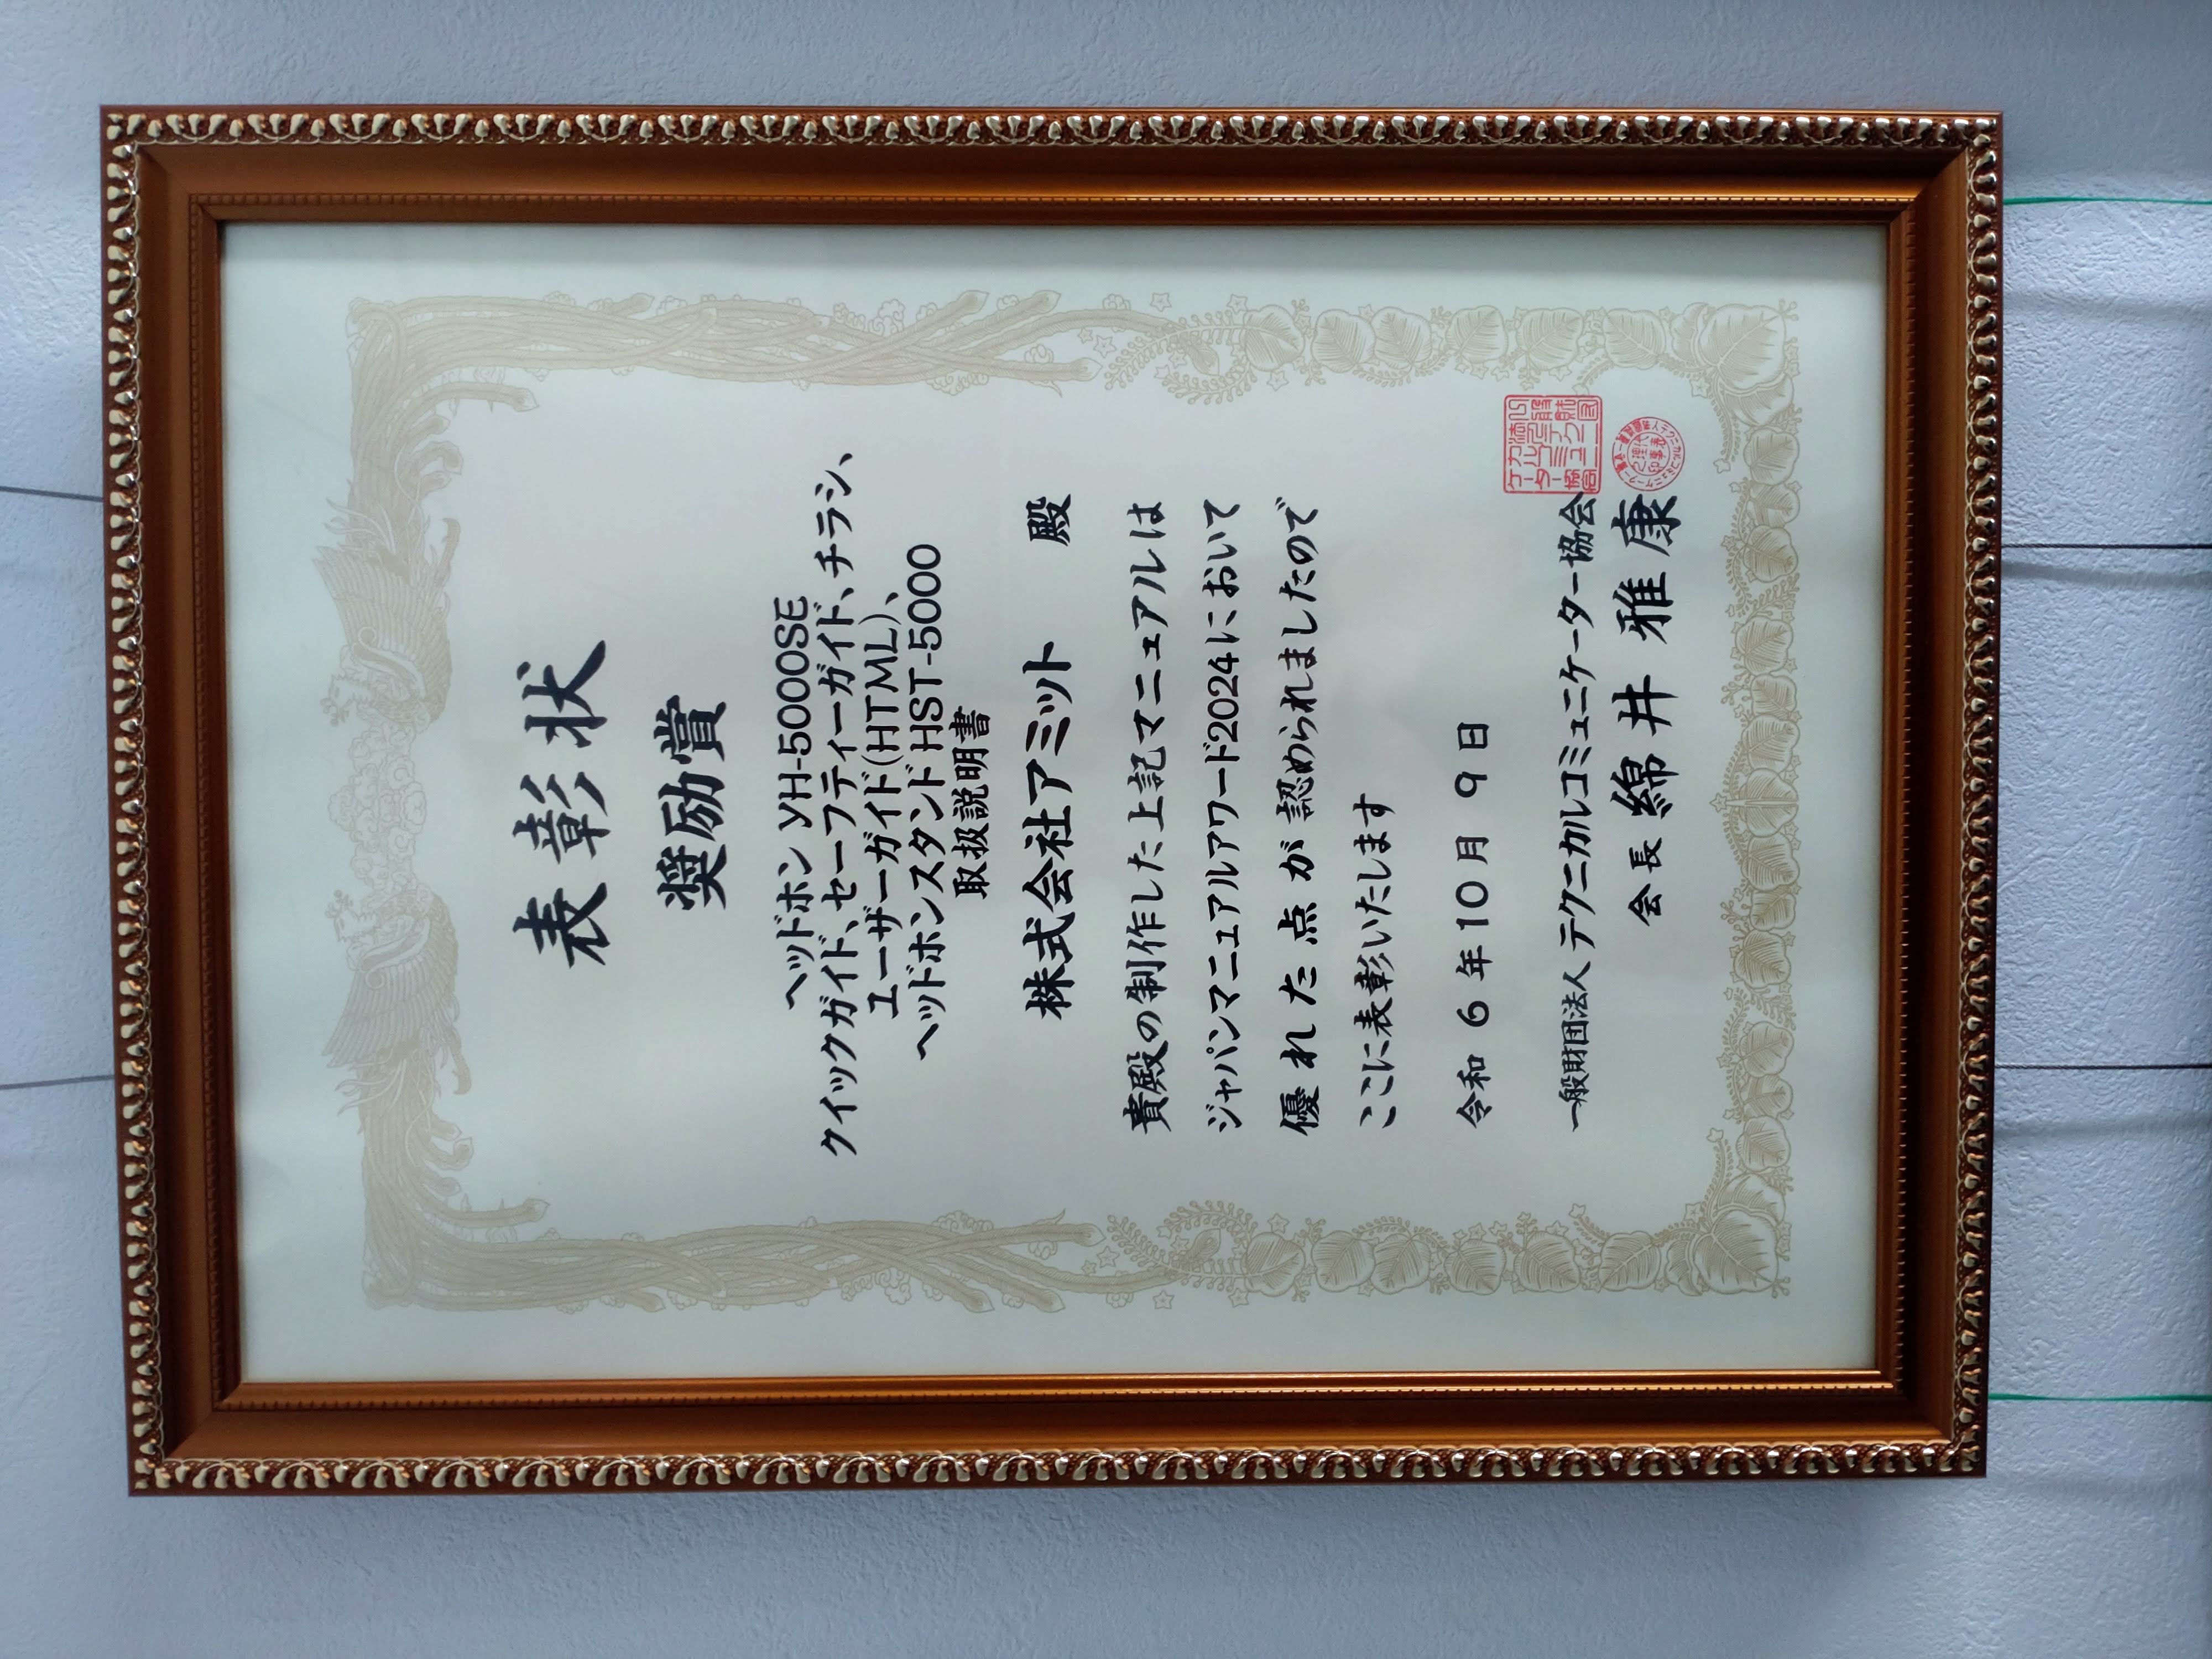 表彰状
奨励賞
ヘッドホン YH-5000SE
クイックガイド、セーフティーガイド、チラシ、
ユーザーガイド(HTML)、
ヘッドホンスタンド HST-5000
取扱説明書
株式会社アミット 殿
貴殿の制作した上記マニュアルは
ジャパンマニュアルアワード2024において
優れた点が認められましたので
ここに表彰いたします
令和6年10月9日
一般財団法人 テクニカルコミュニケーター協会
会長 綿井雅康